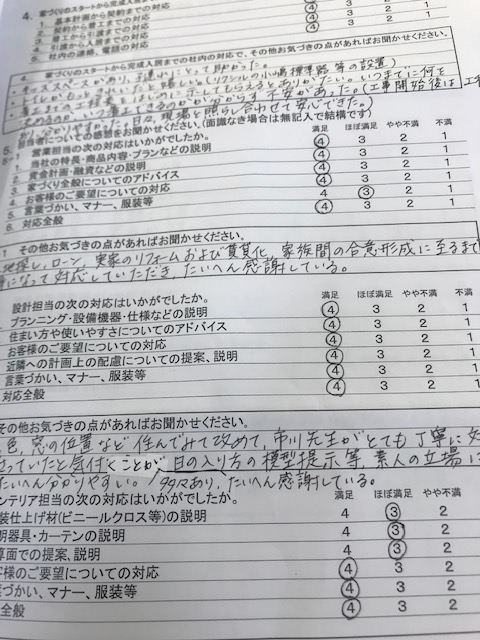 4. 家づくりのスタートから完成入居まで
1. 基本計画から契約までの対応
2. 契約から着工までの対応
3. 着工から引渡までの対応
4. 引渡から入居までの対応
5. 社内の連絡、電話の対応
4 3 2 1
4. 家づくりのスタートから完成入居までの社内の対応で、その他お気づきの点があればお聞かせください。
・キッズスペースがあり、子連れにとって助かった。
・トイレがもっときれいだと嬉しい
標準器 等の設置)
・着工までの工程表
もらえるとありがたい。いつまでに何を
いつ着工できるのかが分からず、不安があった。(工事開始後は工程
分かりやすく、日々、現場と照らし合わせて安心できた。)
5. 担当者についての感想をお聞かせください。(面識なき場合は無記入で結構です)
営業担当の次の対応はいかがでしたか。
満足 ほぼ満足 やや不満 不満
1. 当社の特長・商品内容・プランなどの説明 4 3 2 1
2. 資金計画・融資などの説明 4 3 2 1
3. 家づくり全般についてのアドバイス 4 3 2 1
4. お客様のご要望についての対応 4 3 2 1
5. 言葉づかい、マナー、服装等 4 3 2 1
6. 対応全般 4 3 2 1
1 その他お気づきの点があればお聞かせください。
地探し、ローン、実家のリフォームおよび賃貸化、家族間の合意形成に至るまで
になって対応していただき、たいへん感謝している。
設計担当の次の対応はいかがでしたか。 満足 ほぼ満足 やや不満 不満
プランニング・設備機器・仕様などの説明 4 3 2 1
住まい方や使いやすさについてのアドバイス 4 3 2 1
お客様のご要望についての対応 4 3 2 1
近隣への計画上の配慮についての提案、説明 4 3 2 1
言葉づかい、マナー、服装等 4 3 2 1
対応全般 4 3 2 1
その他お気づきの点があればお聞かせください。
色、窓の位置など 住んでみて改めて、市川先生がとても丁寧に対
さっていたと気付くことが 日の入り方の模型提示等、素人の立場に
たいへん分かりやすい。 多々あり、たいへん感謝している。
ンテリア担当の次の対応はいかがでしたか。 満足 ほぼ満足 やや不満
装仕上げ材(ビニールクロス等)の説明 4 3 2
明器具・カーテンの説明 4 3 2
算面での提案、説明 4 3 2
客様のご要望についての対応 4 3 2
葉づかい、マナー、服装等 4 3 2
全般 4 3 2